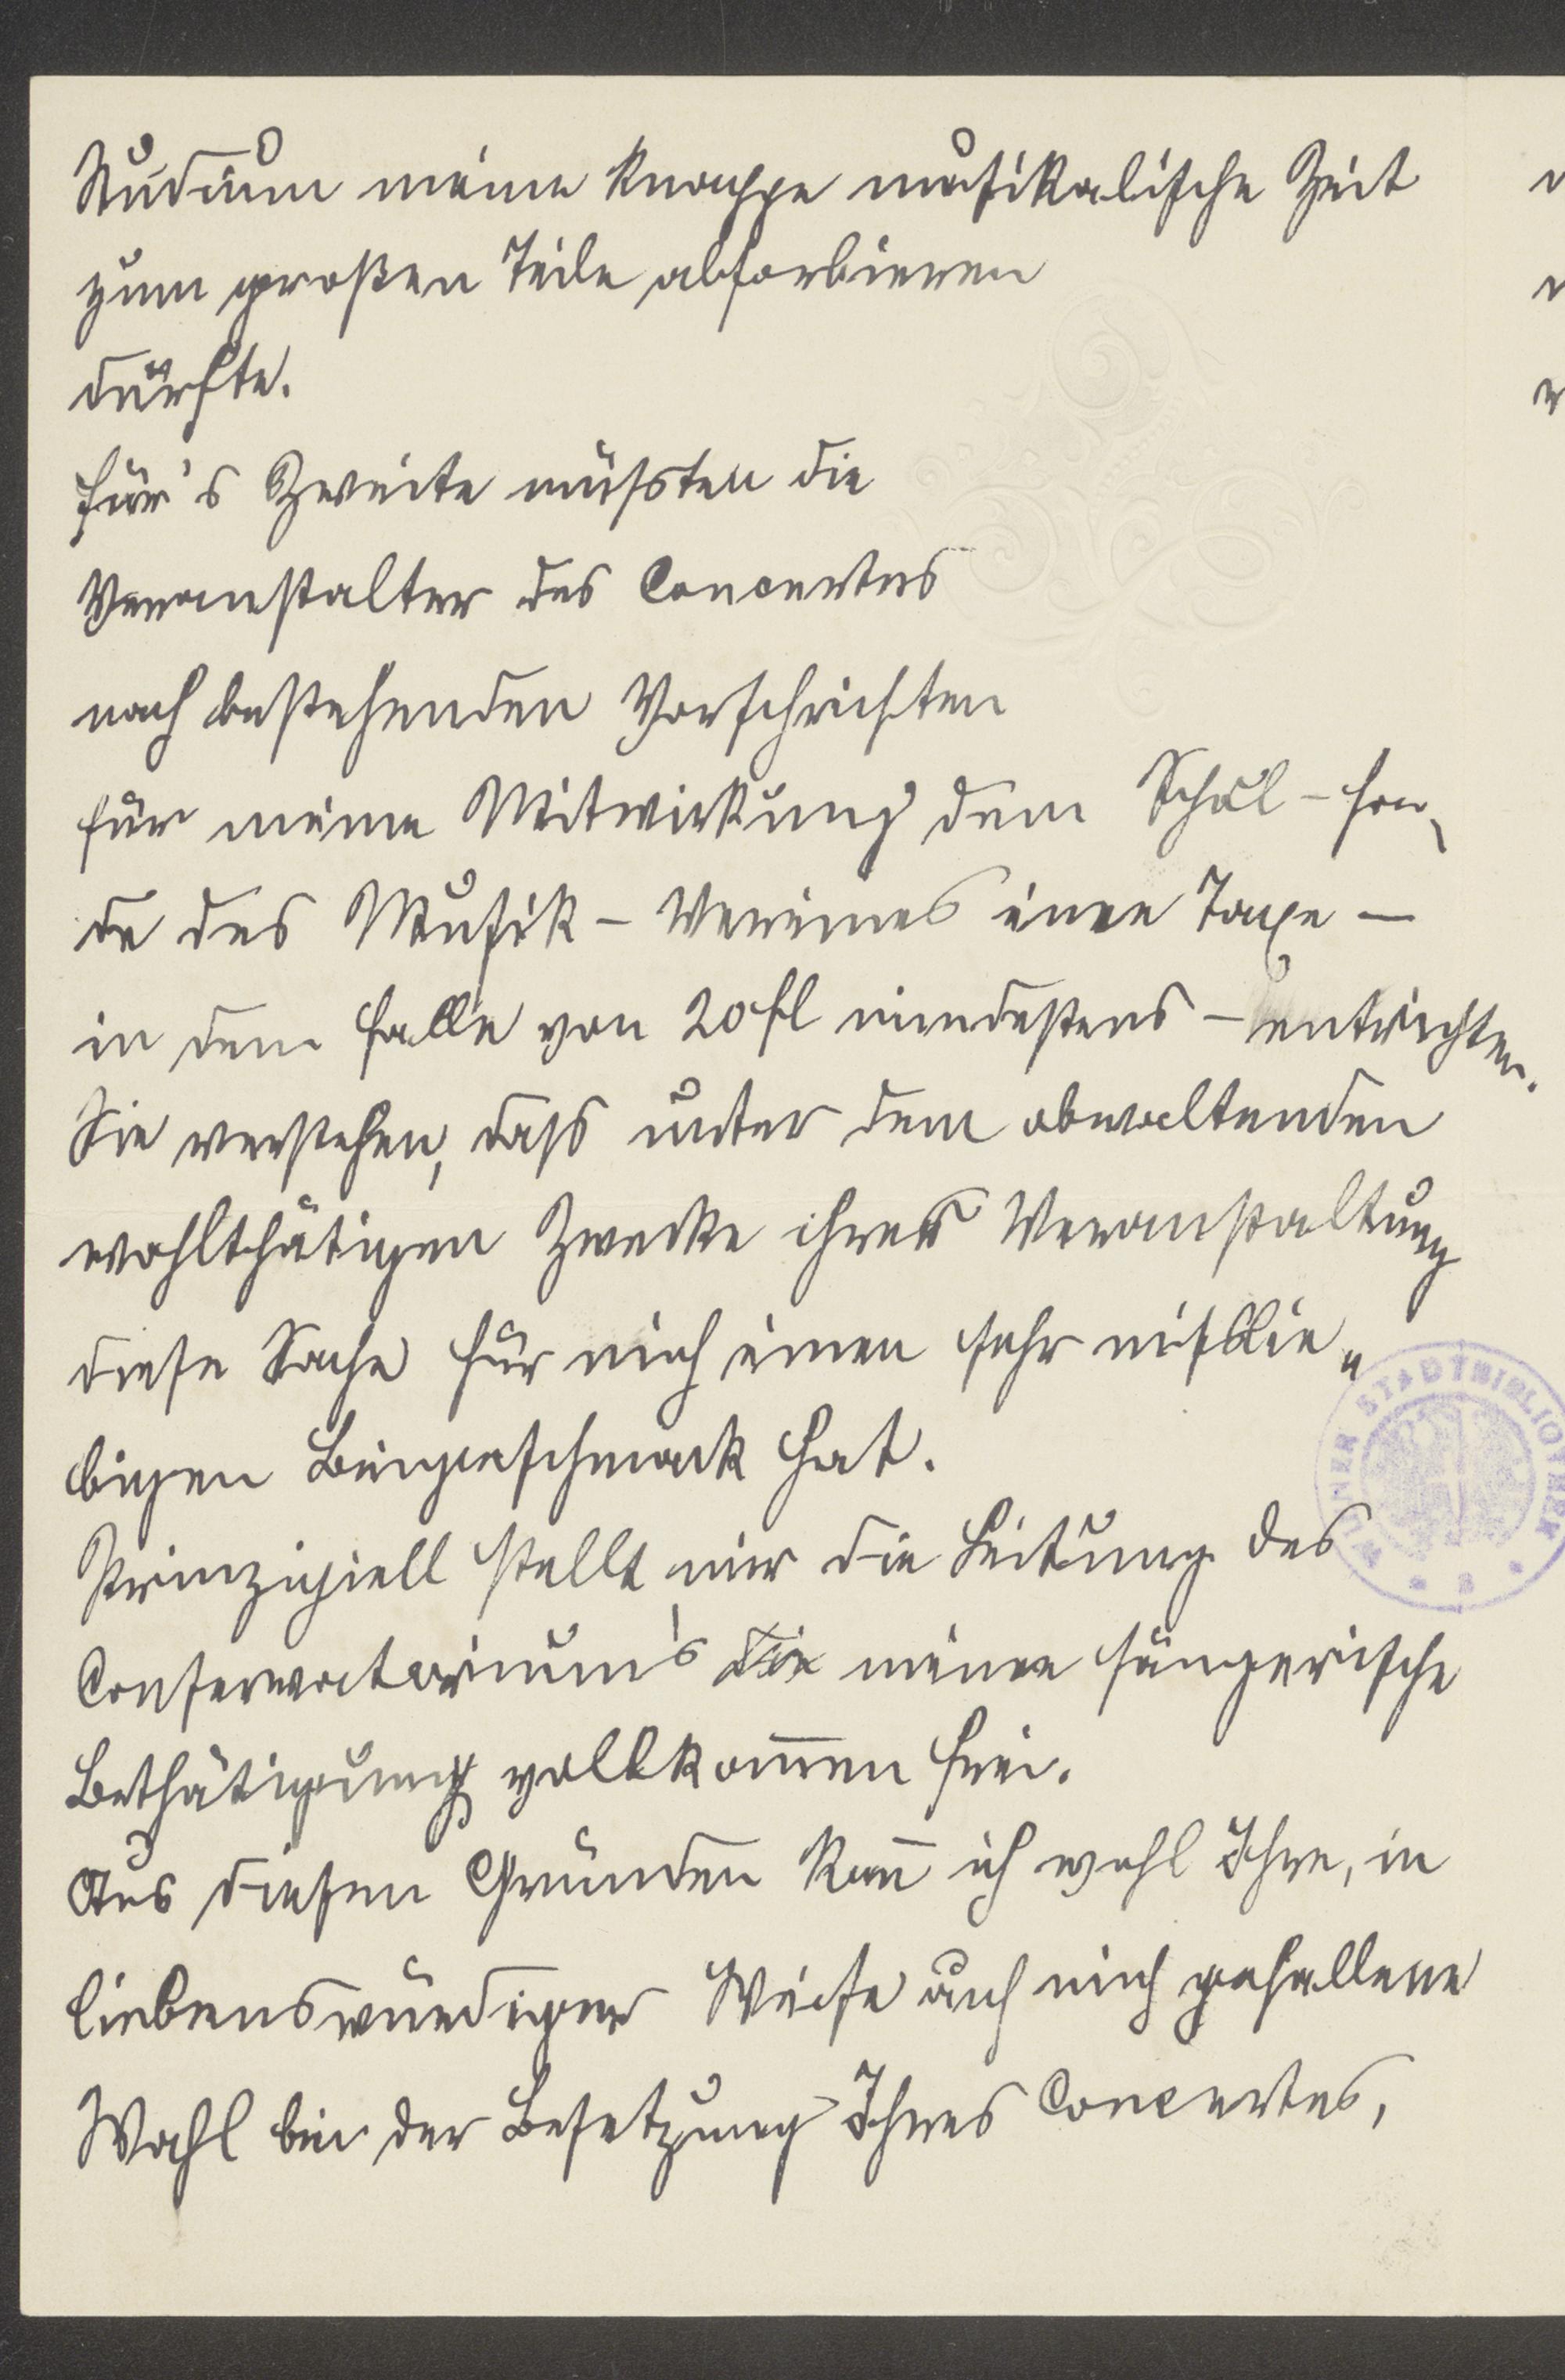 Studium meine knappe musikalische Zeit
zum großen Teile absorbieren
dürfte.
für's Zweite müssten die
Veranstalter des Concertes
nach bestehenden Vorschriften
für meine Mitwirkung dem Schul-fon-
de des Musik-Vereines eine Taxe –
in dem Falle von 20 fl mindestens – entrichten.
Sie verstehen, dass unter dem obwaltenden
wohlthätigen Zwecke ihrer Veranstaltung
diese Sache für mich einen sehr misslie„
bigen Beigeschmack hat.
Prinzipiell stellt mir die Leitung des
Conservatorium's die meine sängerische
Bethätigung vollkommen frei.
Aus diesen Gründen kann ich wohl Ihre, in
liebenswürdiger Weise auf mich gefallene
Wahl bei der Besetzung Ihres Concertes,
WIENER STADTBIBLIOTHEK